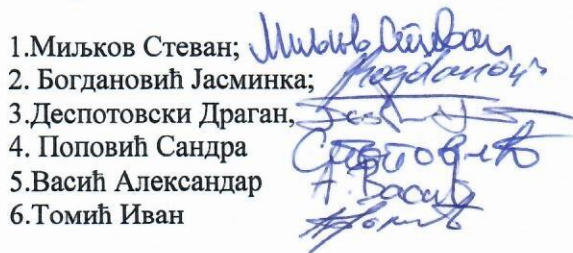 1.Миљков Стеван; Миљков Стеван
2. Богдановић Јасминка; Bogdanović
3.Деспотовски Драган,
4. Поповић Сандра
5.Васић Александар А. Васић
6.Томић Иван